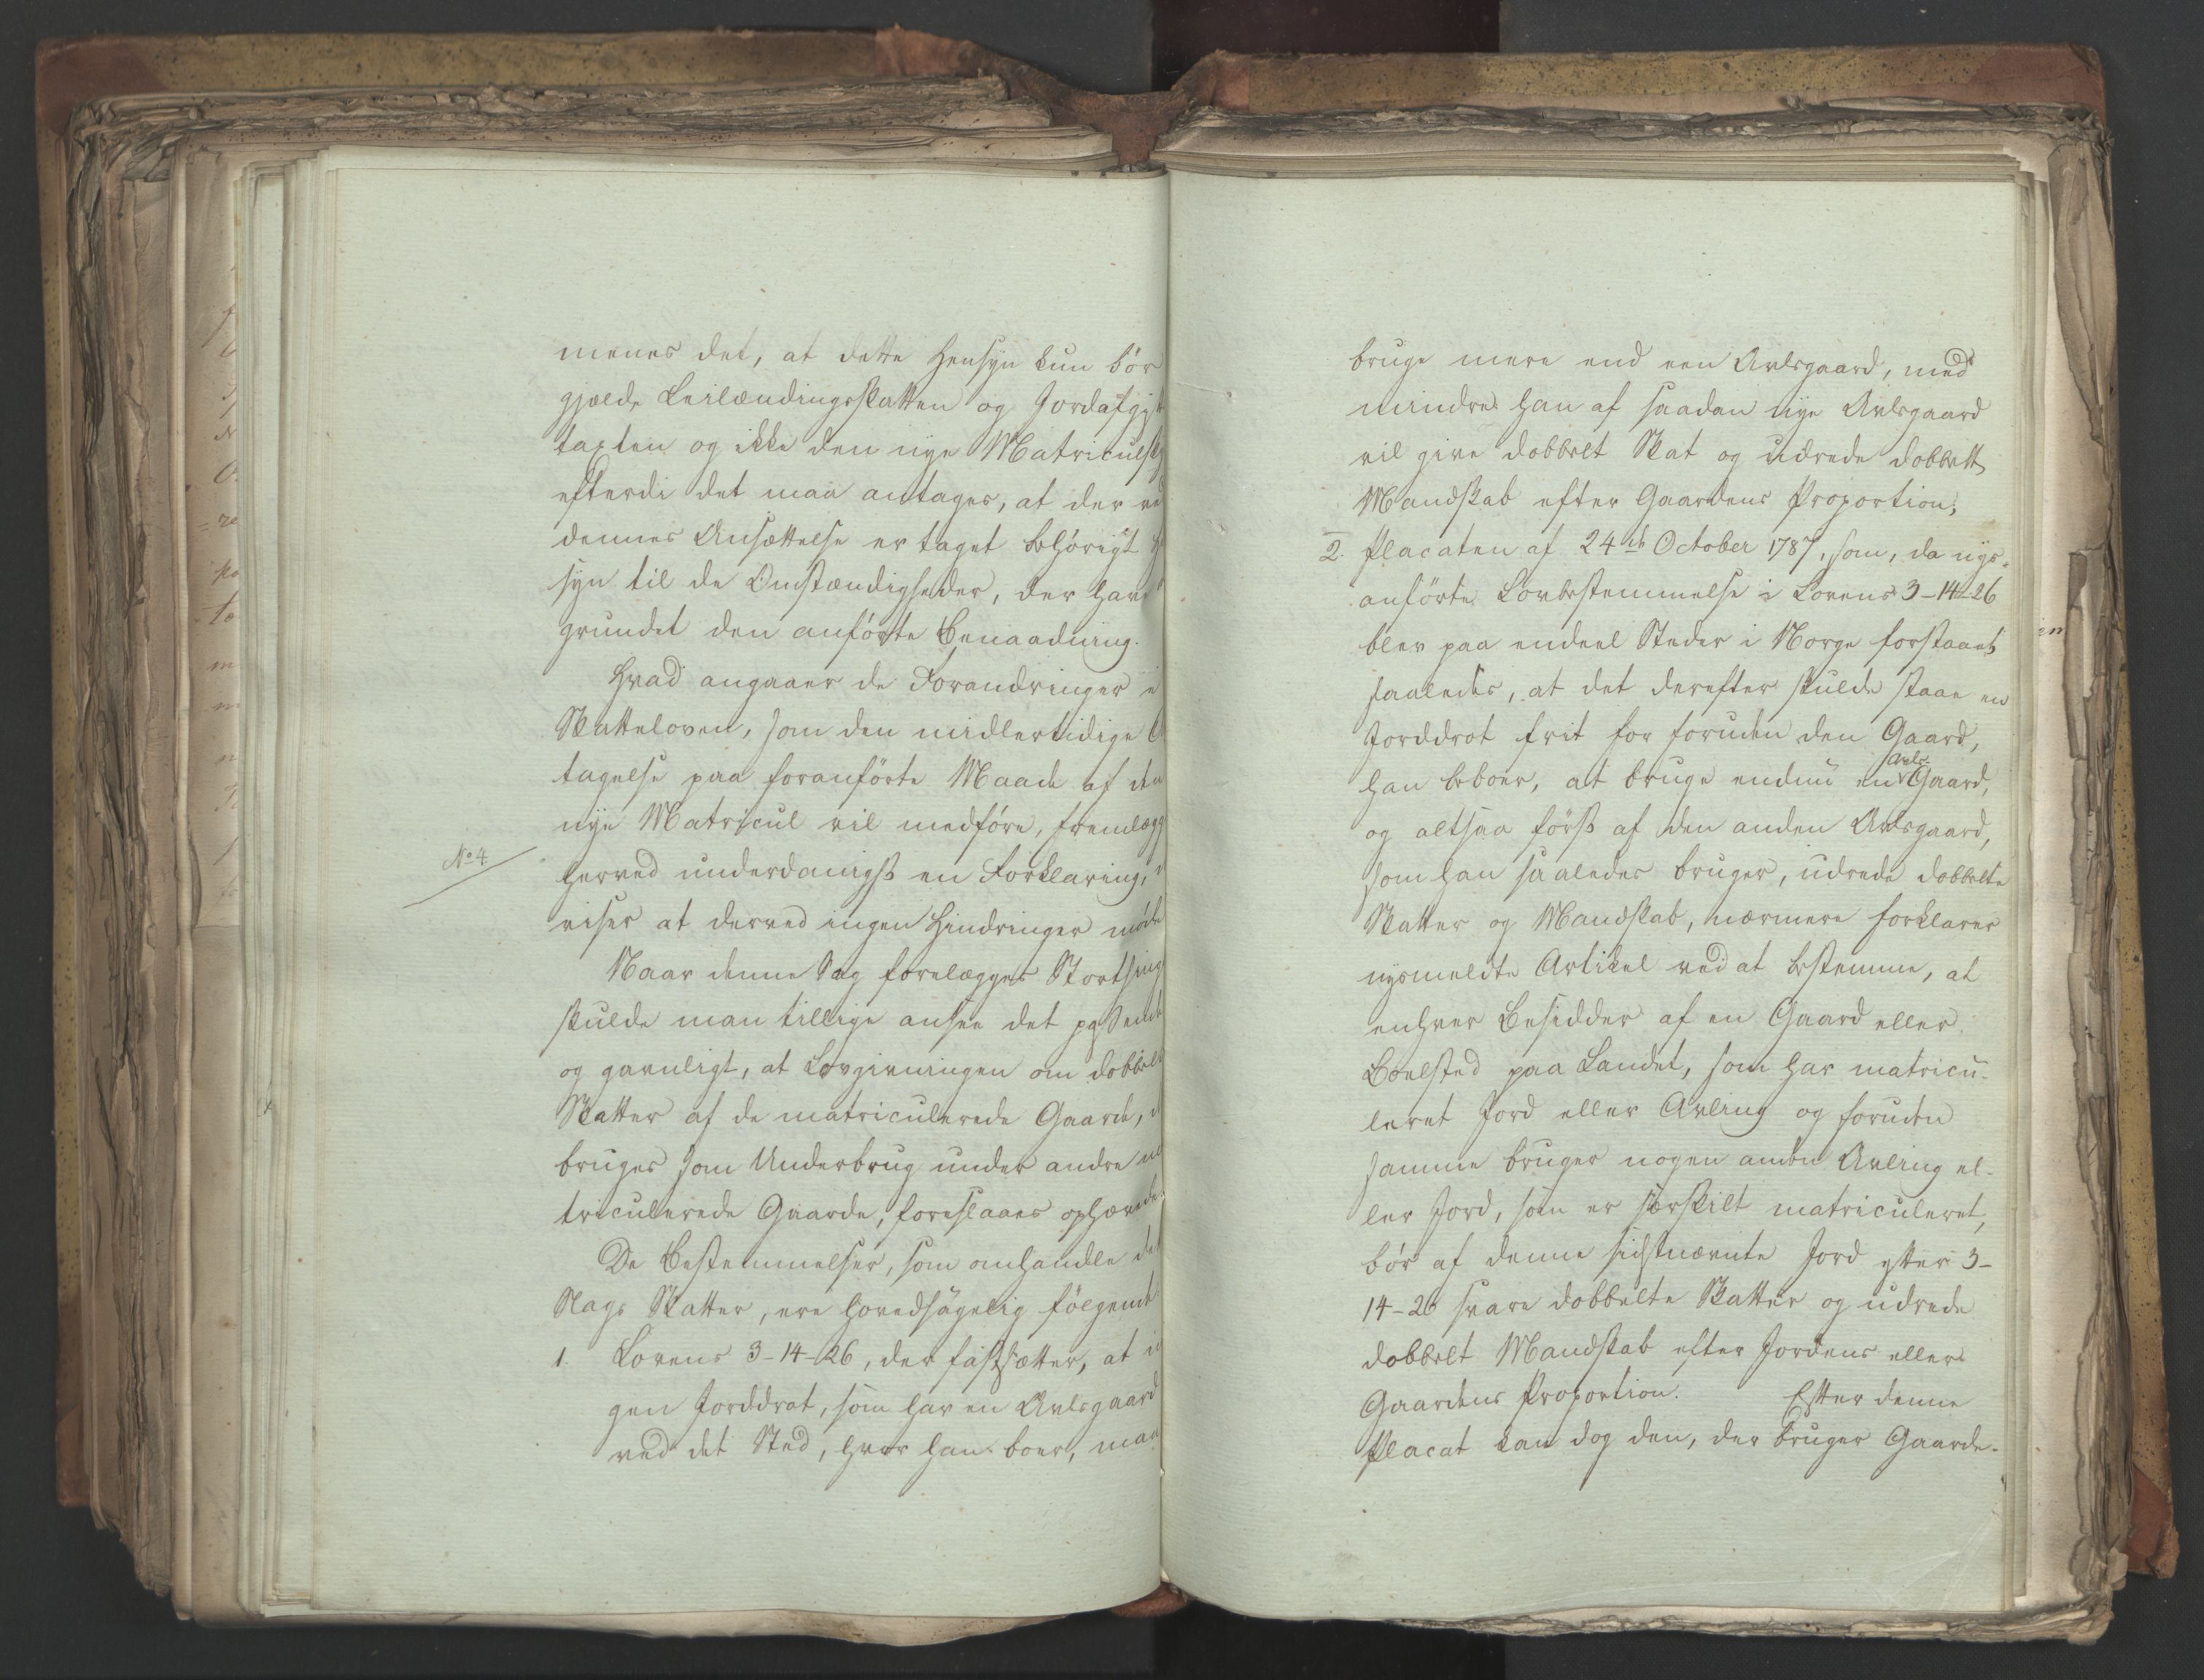 menes det, at dette Hensyn kun bör
gjælde Leilændingsskatten og Jordafgift
taxten og ikke den nye Matriculsky
efterdi det maa antages, at der ve
dennes Ansættelse er taget behörigt H
syn til de Omstændigheder, der have
grundet den anförte Benaadning.
Hvad angaaer de Forandringer i
Skatteloven, som den midlertidige A
tagelse paa foranförte Maade af den
nye Matricul vil medföre, fremlægg
No 4
herved underdanigst en Forklaring,
viser at derved ingen Hindringer möde
Naar denne Sag forelægges Storthing
skulde man tillige ansee det passende
og gavnligt, at Lovgivningen om dobbelt
Skatter af de matriculerede Gaarde, d
bruges som Underbrug under andre ma
triculerede Gaarde, foreslaaes ophævede.
De Bestemmelser, som omhandle det
Slags Skatter, ere hovedsagelig fölgende
1. Lovens 3-14-26, der fastsætter, at in
gen Jorddrot, som har en Avlsgaard
ved det Sted, hvor han boer, maa
bruge mere end een Avlsgaard, med
mindre han af saadan nye Avlsgaard
vil give dobbelt Skat og udrede dobbelt
Mandskab efter Gaardens Proportion;
2. Placaten af 24de October 1787, som, da nys-
anförte Lovbestemmelse i Lovens 3-14-26
blev paa endeel Steder i Norge forstaaet
saaledes, at det derefter skulde staae en
Jorddrot frit for foruden den Gaard,
han beboer, at bruge endnu en Avls-Gaard,
og altsaa först af den anden Avlsgaard,
som han saaledes bruger, udrede dobbelte
Skatter og Mandskab, nærmere forklarer
nysmeldte Artikel ved at bestemme, at
enhver Besidder af en Gaard eller
Boelsted paa Landet, som har matricu-
leret Jord eller Avling og foruden
samme bruger nogen anden Avling el-
ler Jord, som er særskilt matriculeret,
bör af denne sidstnævnte Jord efter 3-
14-26 svare dobbelte Skatter og udrede
dobbelt Mandskab efter Jordens eller
Gaardens Proportion. Efter denne
Placat kan dog den, der bruger Gaarde-